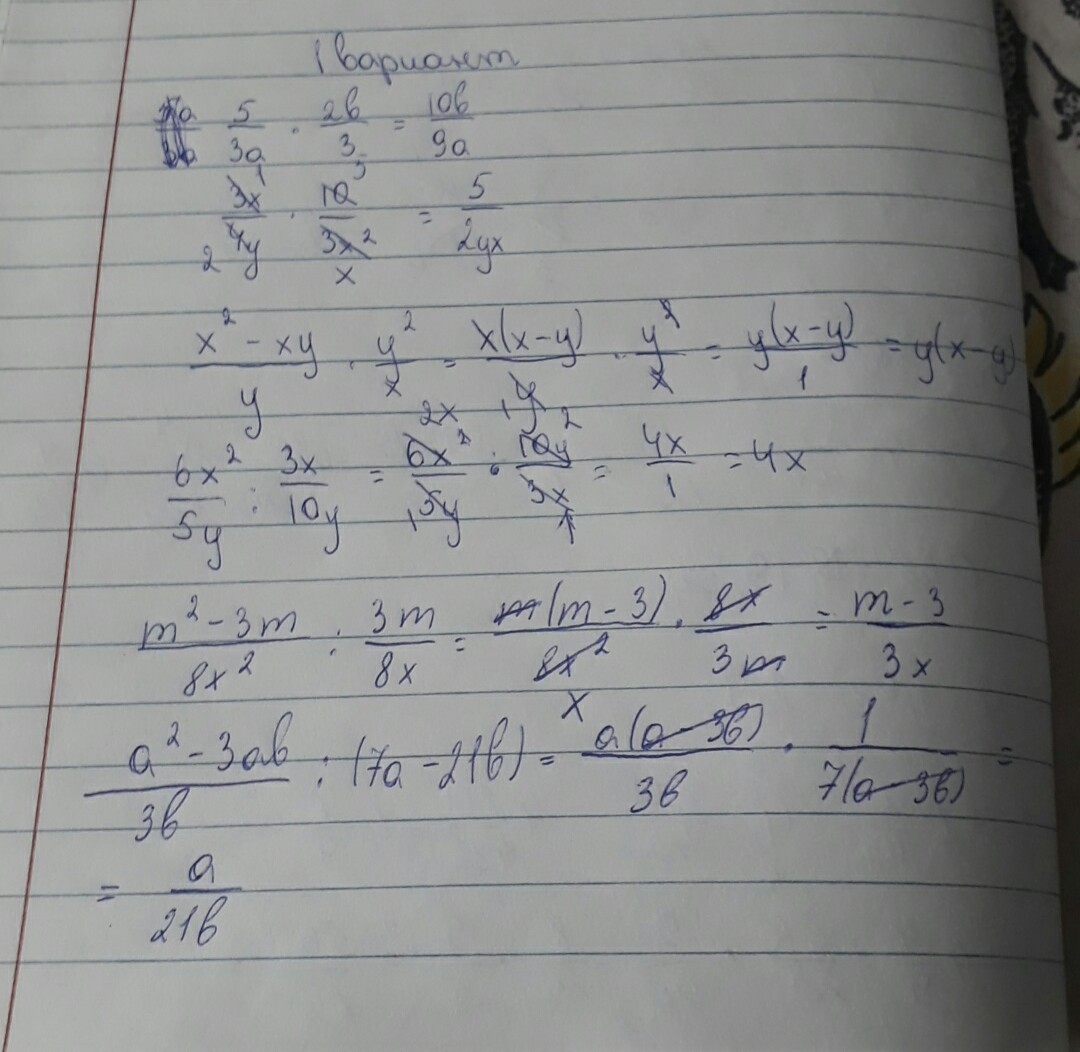 1 вариант
5/3a · 2b/3 = 10b/9a
3x/4y · 10/3x² = 5/2yx
x² - xy/y · y²/x = x(x-y)/y · y²/x = y(x-y)/1 = y(x-y)
6x²/5y : 3x/10y = 6x²/5y · 10y/3x = 4x/1 = 4x
m² - 3m/8x² : 3m/8x = m(m-3)/8x² · 8x/3m = m-3/3x
a² - 3ab/3b : (7a - 21b) = a(a-3b)/3b · 1/7(a-3b) =
= a/21b